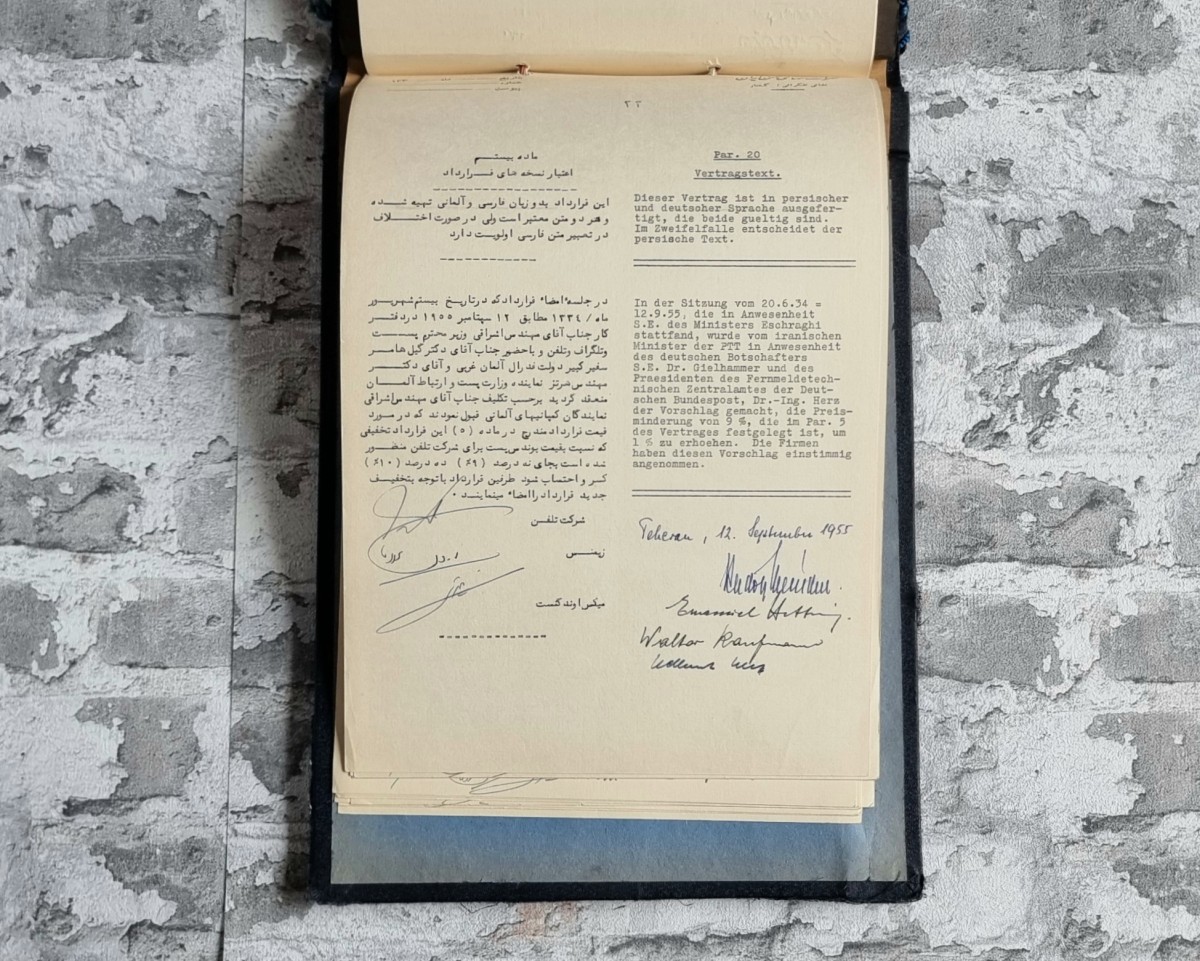 ۲۲
ماده بیستم
اعتبار نسخه های قرارداد
این قرارداد بدو زبان فارسی و آلمانی تهیه شده
و هر دو متن معتبر است ولی در صورت اختلاف
در تعبیر متن فارسی اولویت دارد
در جلسه امضاء قرارداد که در تاریخ بیستم شهریور
ماه / ۱۳۳۴ مطابق ۱۲ سپتامبر ۱۹۵۵ در دفتر
کار جناب آقای مهندس اشراقی وزیر محترم پست
وتلگراف وتلفن و باحضور جناب آقای دکتر گیل هامر
سفیر کبیر دولت فدرال آلمان غربی و آقای دکتر
مهندس هرتز نماینده وزارت پست و ارتباط آلمان
منعقد گردید برحسب تکلیف جناب آقای مهندس اشراقی
نمایندگان کمپانیهای آلمانی قبول نمودند که در مورد
قیمت قرارداد مندرج در ماده (۵) این قرارداد تخفیفی
که نسبت بقیمت بوندس پست برای شرکت تلفن منظور
شده است بجای نه درصد (۹٪) ده درصد (۱۰٪)
کسر و احتساب شود طرفین قرارداد باتوجه بتخفیف
جدید قرارداد را امضاء مینمایند .
شرکت تلفن
زیمنس
میکس اوند گنست
Par. 20
Vertragstext.
Dieser Vertrag ist in persischer
und deutscher Sprache ausgefer-
tigt, die beide gueltig sind.
Im Zweifelfalle entscheidet der
persische Text.
In der Sitzung vom 20.6.34 =
12.9.55, die in Anwesenheit
S.E. des Ministers Eschraghi
stattfand, wurde vom iranischen
Minister der PTT in Anwesenheit
des deutschen Botschafters
S.E. Dr. Gielhammer und des
Praesidenten des Fernmeldetech-
nischen Zentralamtes der Deut-
schen Bundespost, Dr.-Ing. Herz
der Vorschlag gemacht, die Preis-
minderung von 9 %, die im Par. 5
des Vertrages festgelegt ist, um
1 % zu erhoehen. Die Firmen
haben diesen Vorschlag einstimmig
angenommen.
Teheran, 12. September 1955
Walter Kaufmann